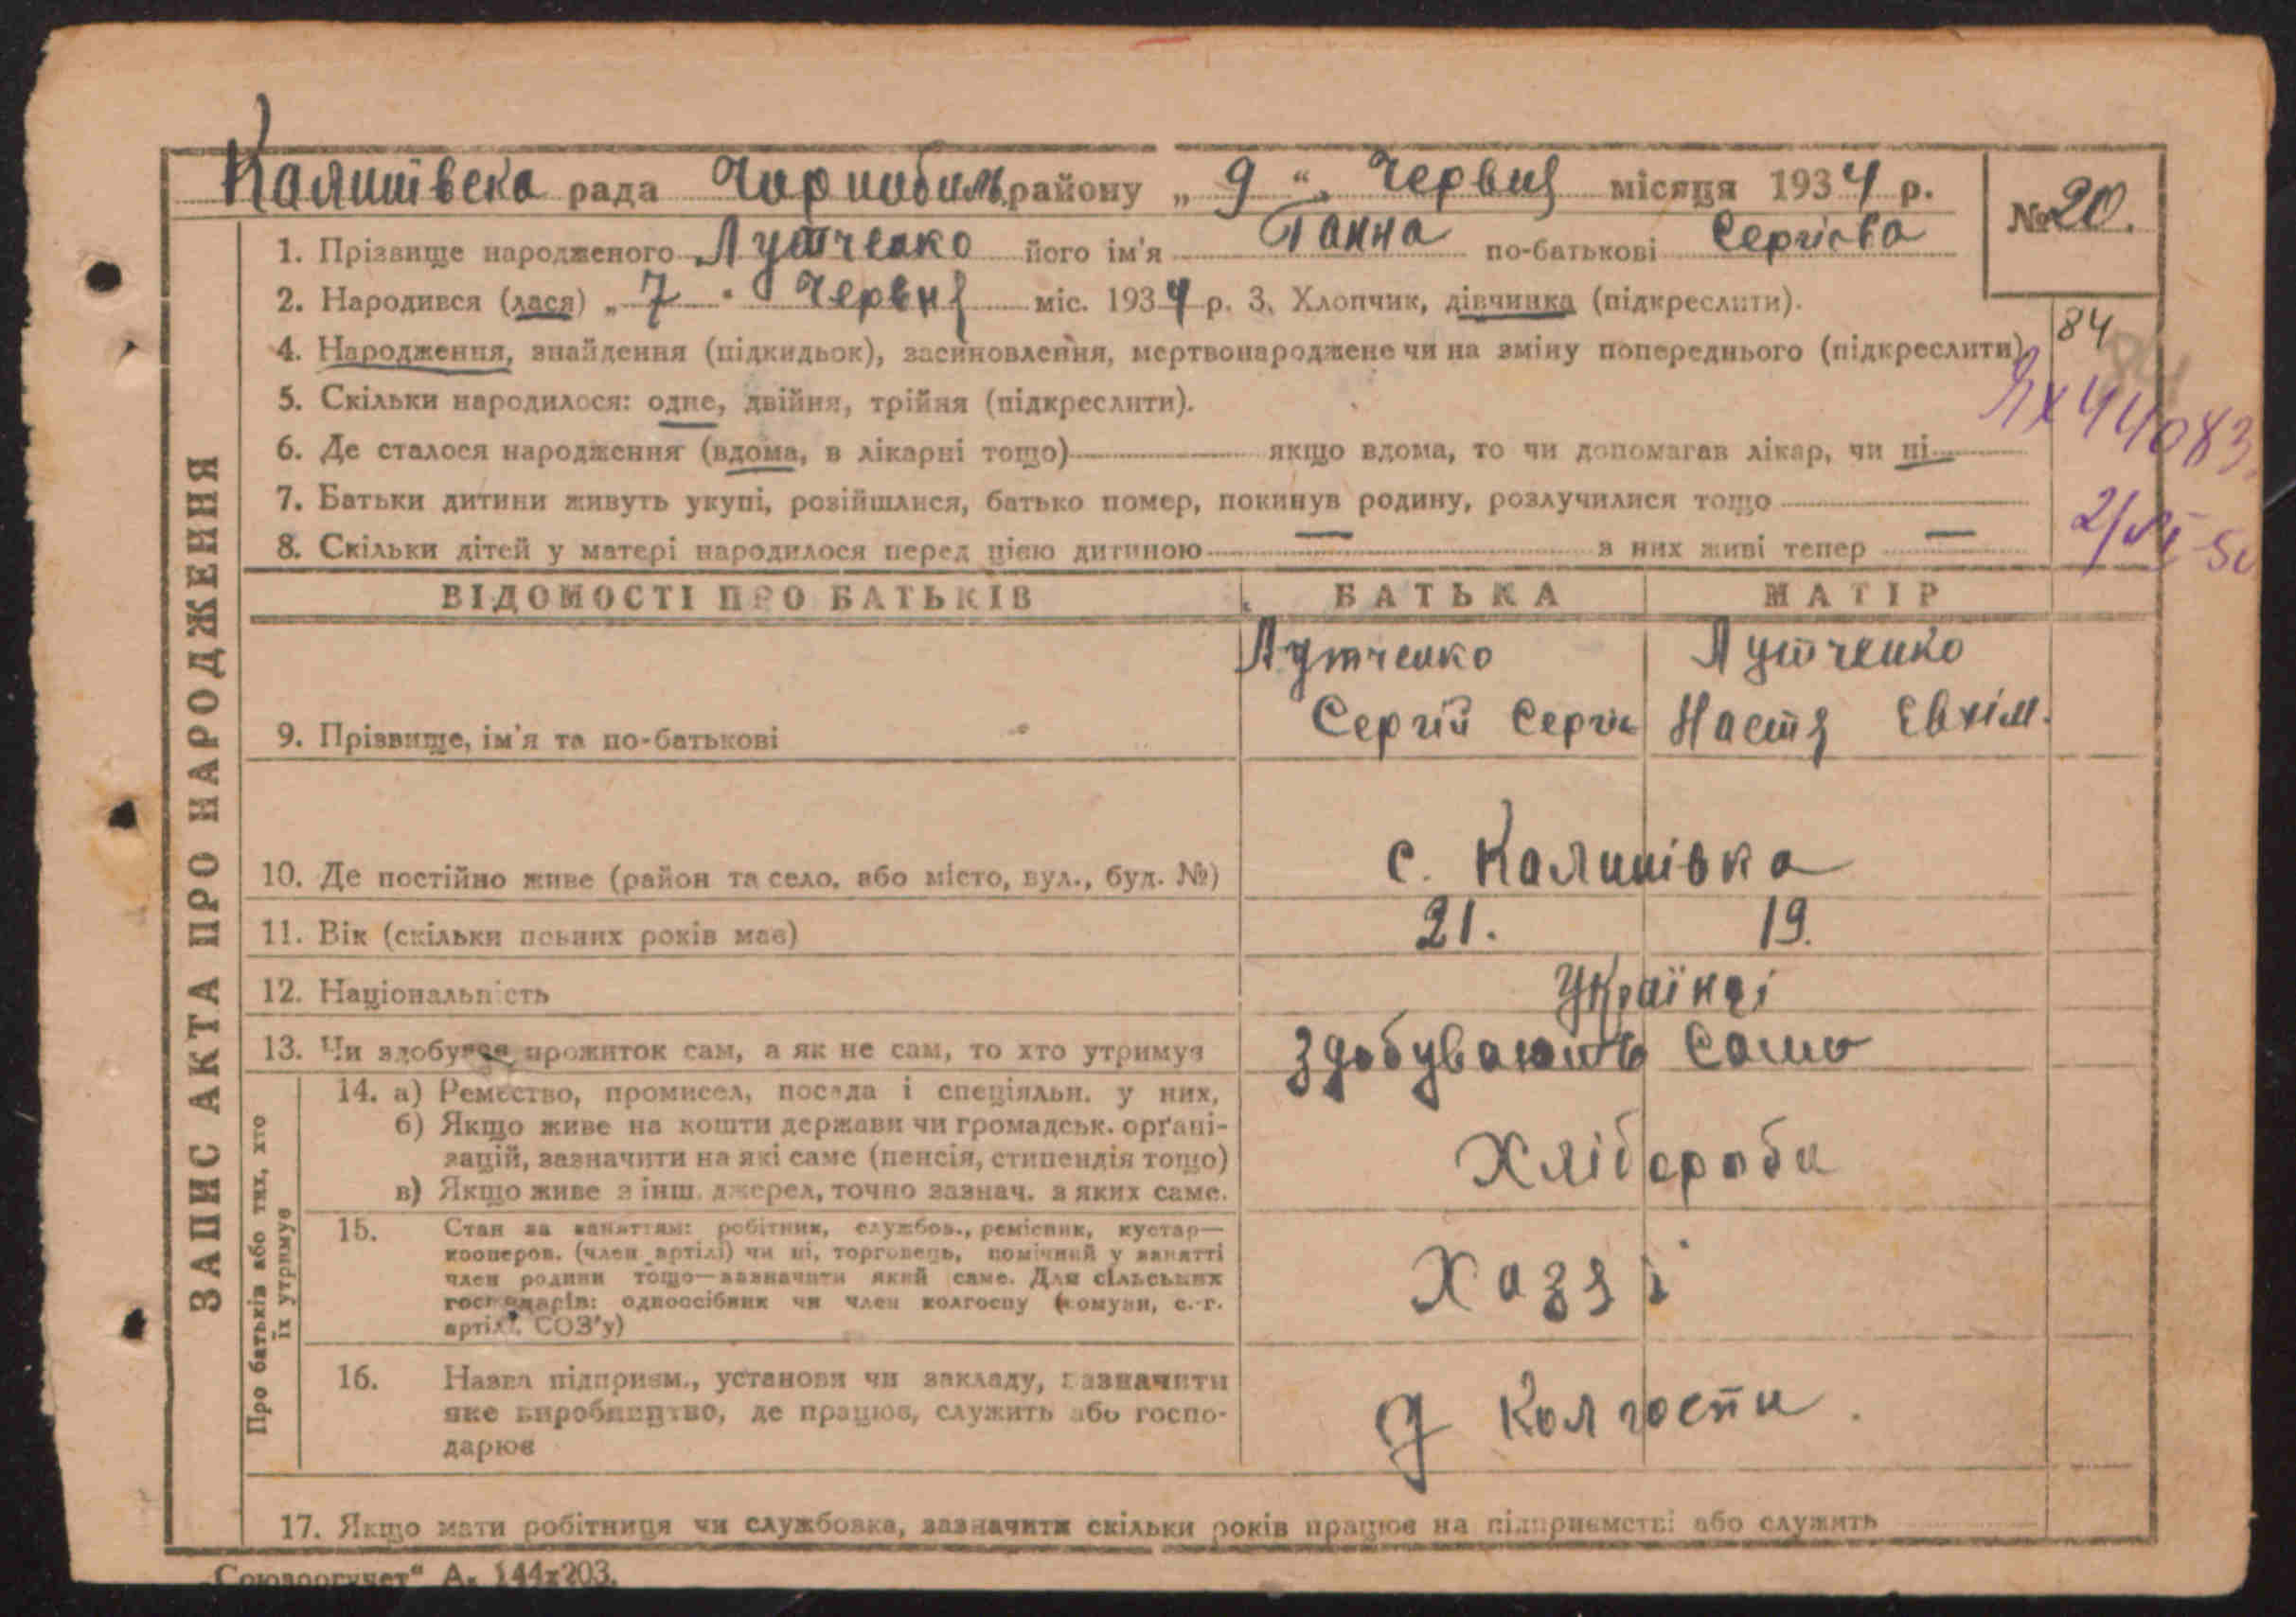 Калинівська рада Чорнобильрайону „ 9 “ Червня місяця 1934 р. № 20.
1. Прізвище народженого Лутченко його ім'я Ганна по-батькові Сергієва
2. Народився (лася) „ 7 " Червня міс. 1934 р. 3. Хлопчик, дівчинка (підкреслити).
84
4. Народження, знайдення (підкидьок), засиновлення, мертвонароджене чи на зміну попереднього (підкреслити)
5. Скільки народилося: одне, двійня, трійня (підкреслити).
44083
6. Де сталося народження (вдома, в лікарні тощо) якщо вдома, то чи допомагав лікар, чи ні
7. Батьки дитини живуть укупі, розійшлися, батько помер, покинув родину, розлучилися тощо
8. Скільки дітей у матері народилося перед цією дитиною — з них живі тепер —
ЗАПИС АКТА ПРО НАРОДЖЕННЯ
ВІДОМОСТІ ПРО БАТЬКІВ БАТЬКА МАТІР
Лутченко Лутченко
9. Прізвище, ім'я та по-батькові Сергій Сергіє Настя Євхім.
10. Де постійно живе (район та село, або місто, вул., буд. №) с. Калинівка
11. Вік (скільки повних років має) 21. 19.
12. Національність Українці
13. Чи здобуває прожиток сам, а як не сам, то хто утримує здобувають само
Про батьків або тих, хто
їх утримує
14. а) Ремество, промисел, посада і спеціяльн. у них,
б) Якщо живе на кошти держави чи громадськ. орґані-
зацій, зазначити на які саме (пенсія, стипендія тощо) Хлібороби
в) Якщо живе з інш. джерел, точно зазнач. з яких саме.
15. Стан за заняттям: робітник, службов., ремісник, кустар—
кооперов. (член артілі) чи ні, торговець, помічний у занятті
член родини тощо—зазначити який саме. Для сільських
господарів: одноосібник чи член колгоспу (комуни, с.-г.
артілі, СОЗ'у)
Хазяї
16. Назва підприєм., установи чи закладу, зазначити
яке виробництво, де працює, служить або госпо-
дарює
У Колгоспи.
17. Якщо мати робітниця чи службовка, зазначити скільки років працює на підприємстві або служить
„Союзоргучет“ А. 144х203.